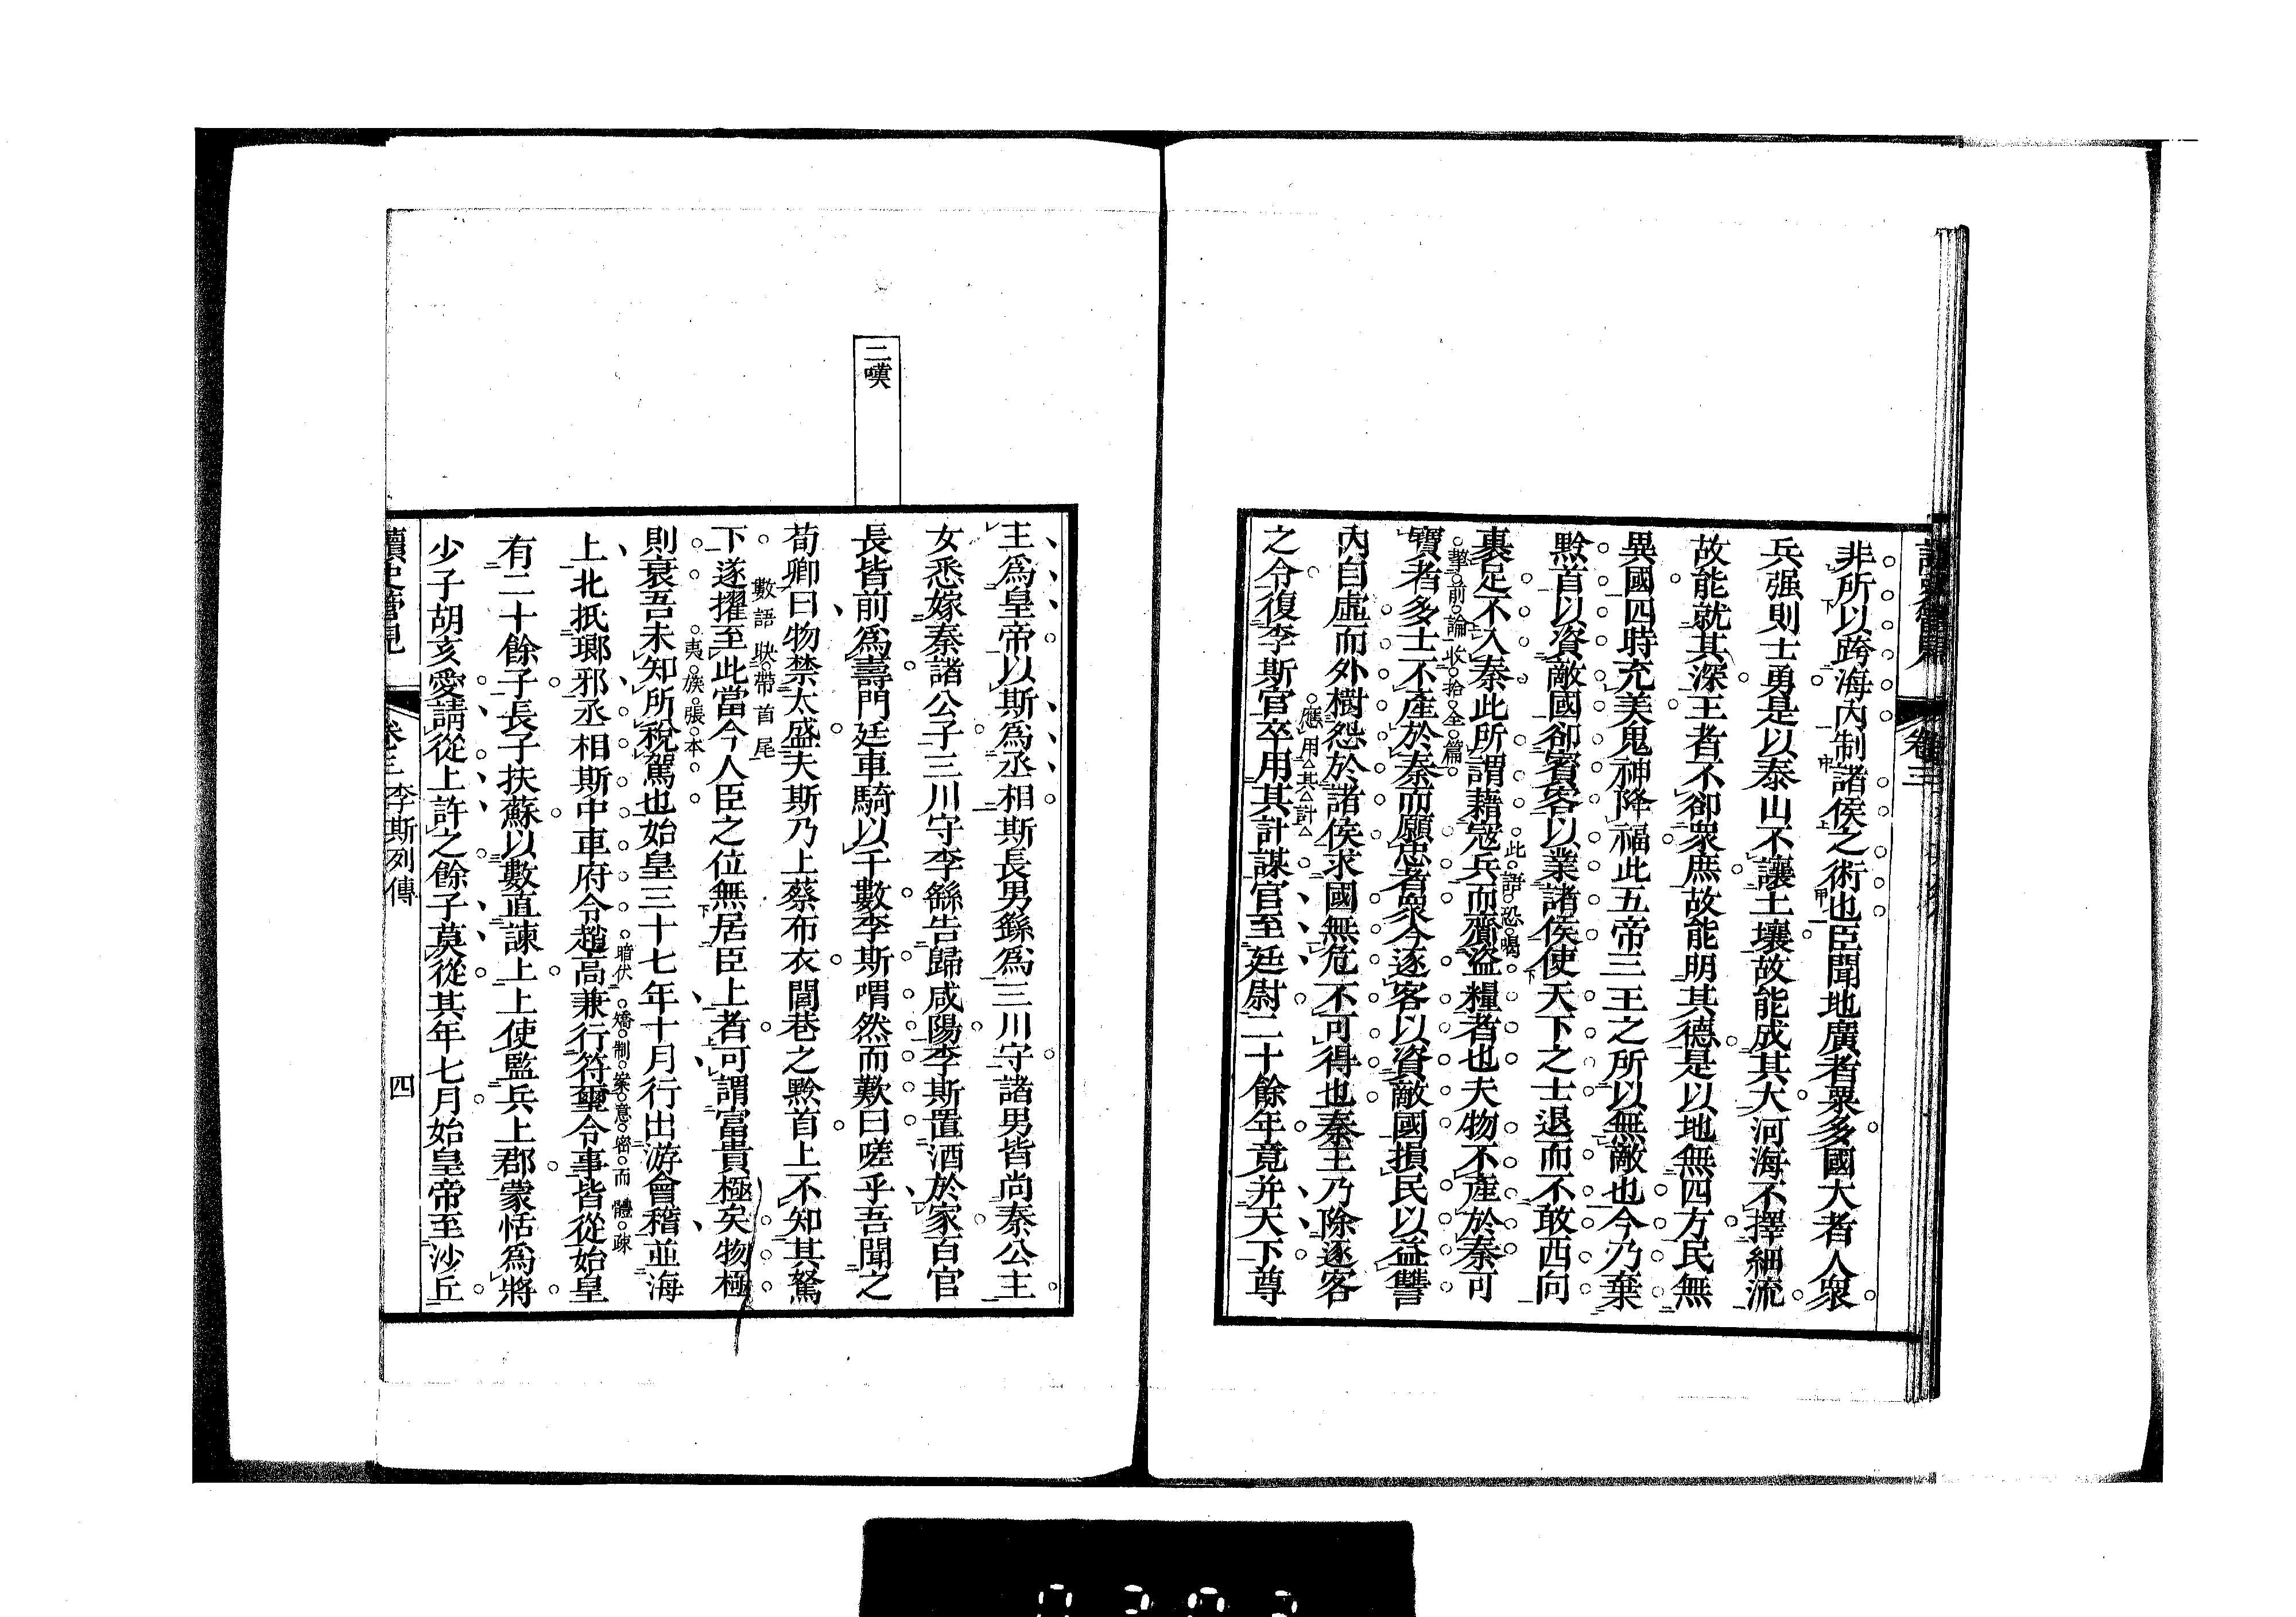 卷三
非所以跨海內制諸侯之術也臣聞地廣者粟多國大者人衆
兵强則士勇是以泰山不讓土壤故能成其大河海不擇細流
故能就其深王者不卻衆庶故能明其德是以地無四方民無
異國四時充美鬼神降福此五帝三王之所以無敵也今乃棄
黔首以資敵國卻賓客以業諸侯使天下之士退而不敢西向
此諺恐喝
裹足不入秦此所謂藉寇兵而齎盜糧者也夫物不產於秦可
擊前論收拾全篇
寶者多士不產於秦而願忠者衆今逐客以資敵國損民以益讐
內自虛而外樹怨於諸侯求國無危不可得也秦王乃除逐客
應用其計
之令復李斯官卒用其計謀官至廷尉二十餘年竟并天下尊
主爲皇帝以斯爲丞相斯長男繇爲三川守諸男皆尚秦公主
女悉嫁秦諸公子三川守李繇告歸咸陽李斯置酒於家百官
長皆前爲壽門廷車騎以千數李斯喟然而歎曰嗟乎吾聞之
二嘆
荀卿曰物禁太盛夫斯乃上蔡布衣閭巷之黔首上不知其駑
數語映帶首尾
下遂擢至此當今人臣之位無居臣上者可謂富貴極矣物極
夷族張本
則衰吾未知所稅駕也始皇三十七年十月行出游會稽並海
暗伏矯制案意密而體疎
上北抵瑯邪丞相斯中車府令趙高兼行符璽令事皆從始皇
有二十餘子長子扶蘇以數直諫上上使監兵上郡蒙恬爲將
少子胡亥愛請從上許之餘子莫從其年七月始皇帝至沙丘
讀史管見 卷三 李斯列傳 四